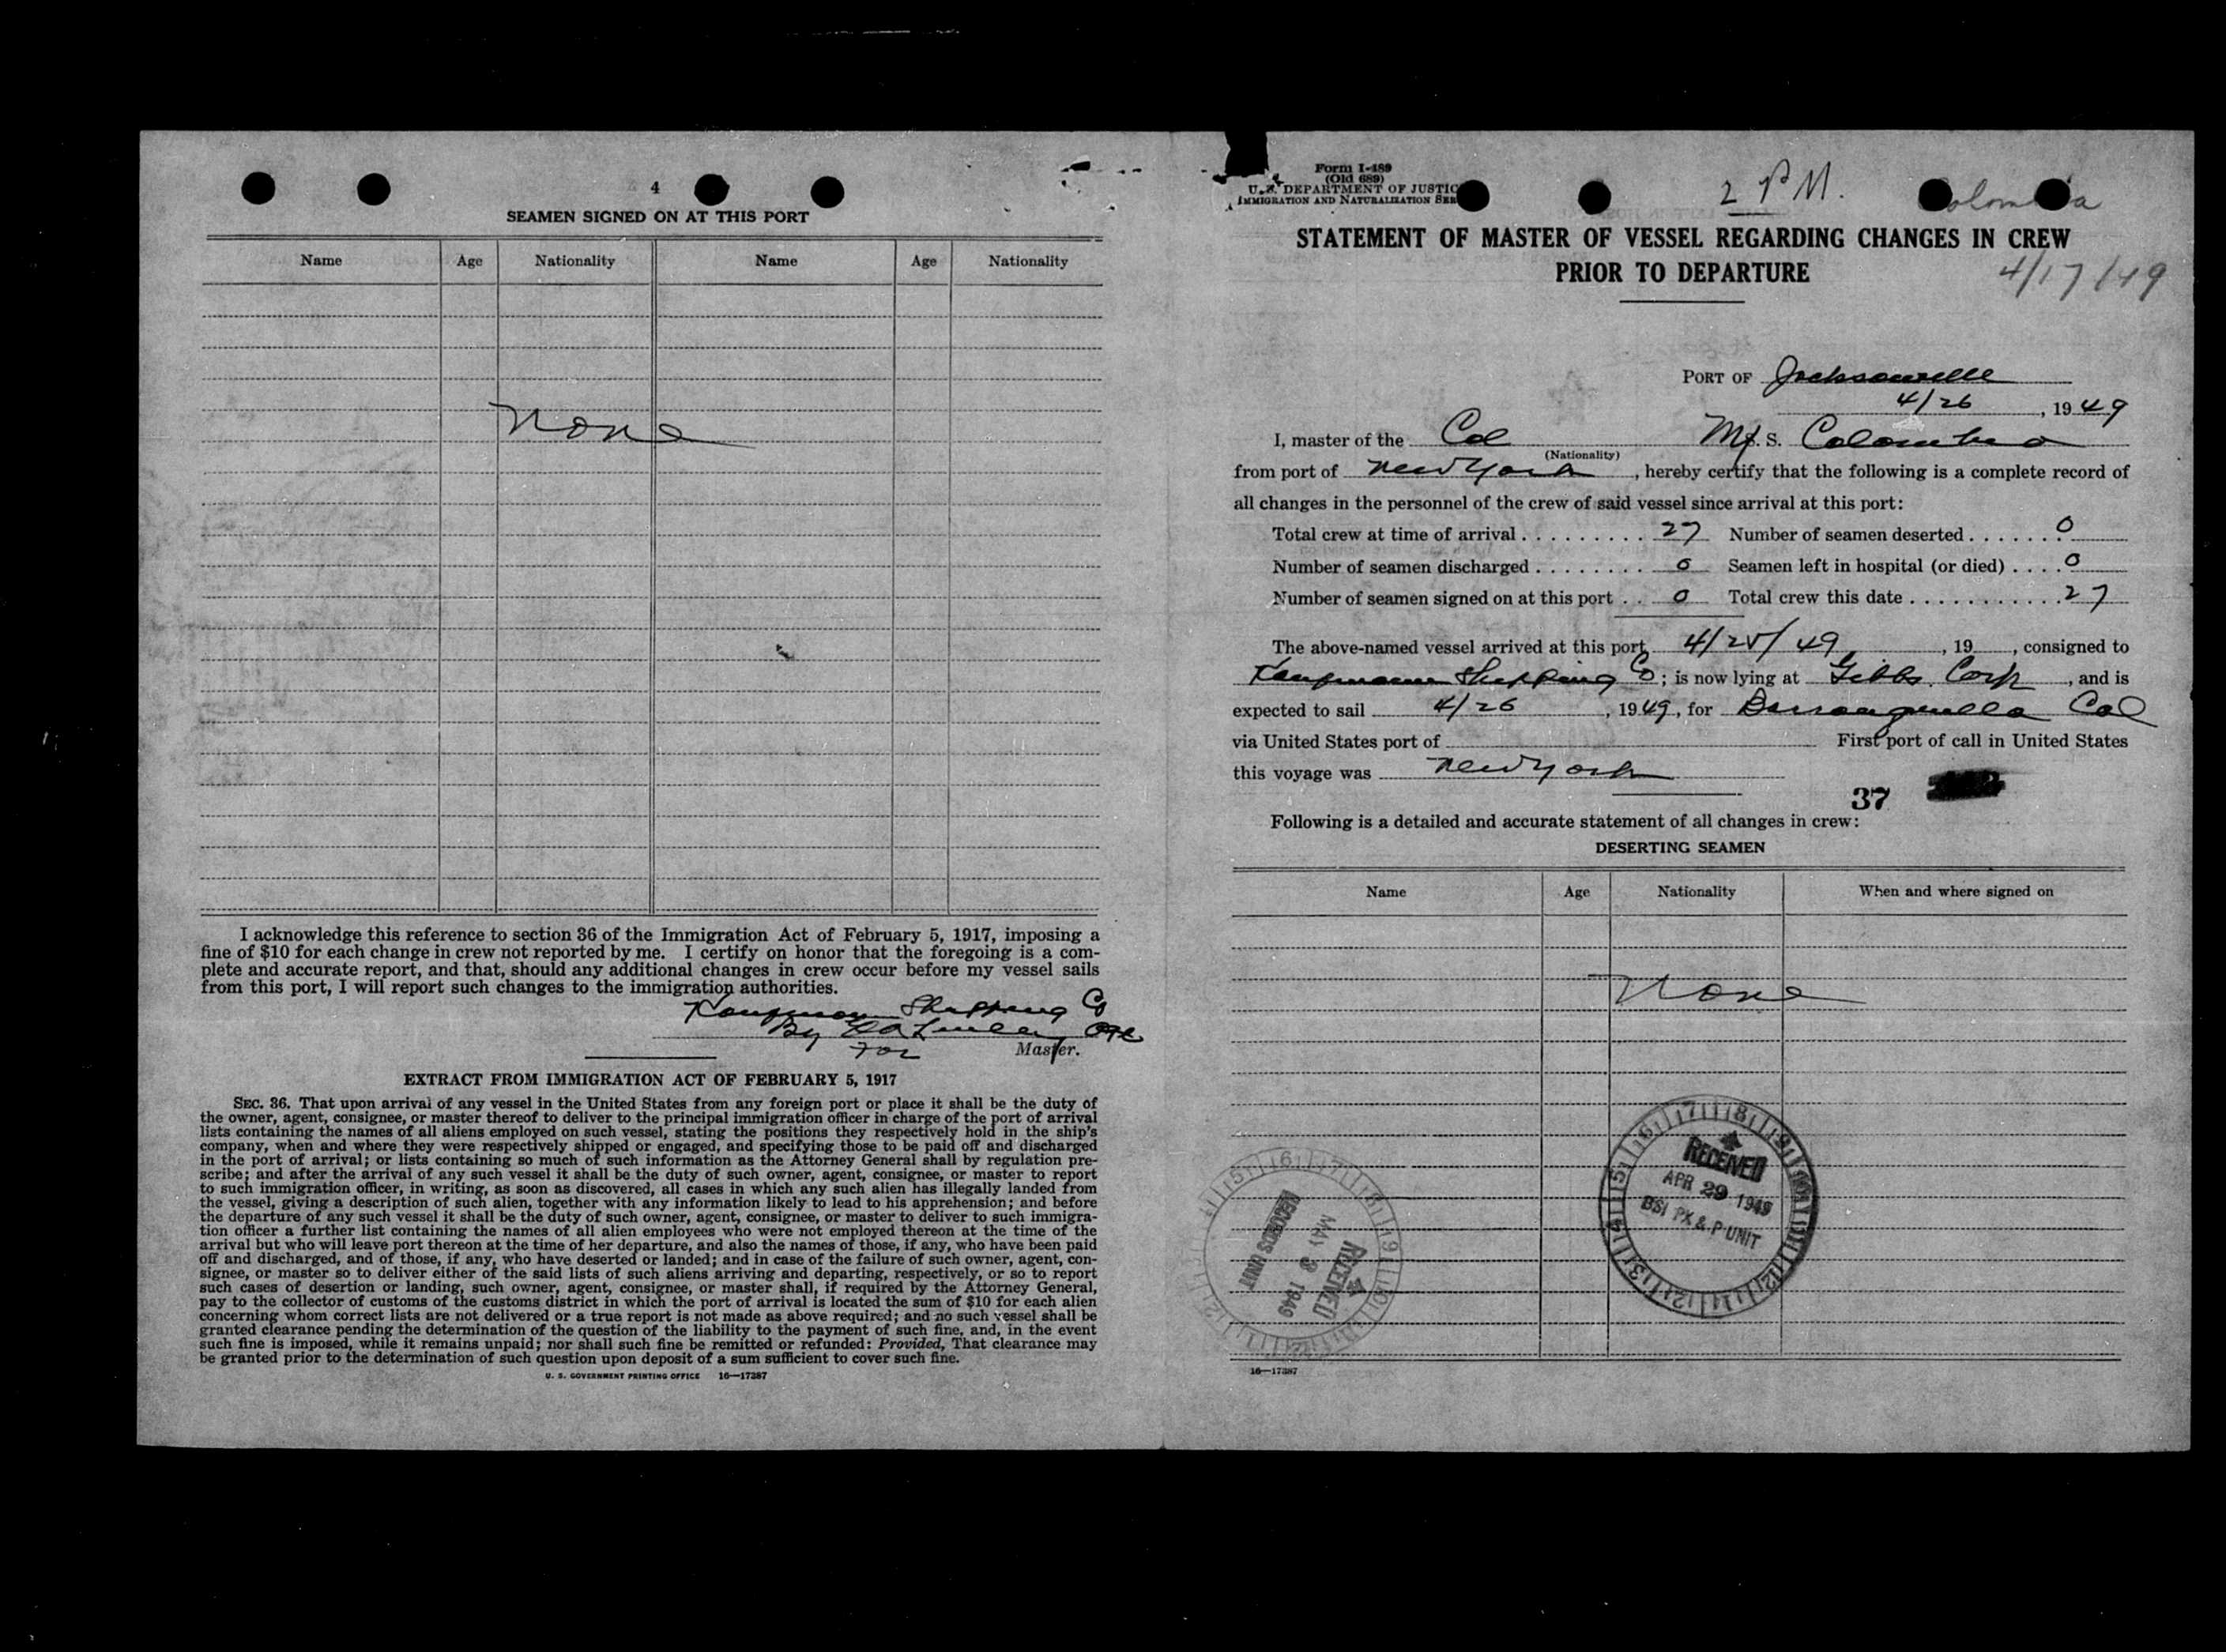 4
SEAMEN SIGNED ON AT THIS PORT
Name Age Nationality Name Age Nationality
None
I acknowledge this reference to section 36 of the Immigration Act of February 5, 1917, imposing a
fine of $10 for each change in crew not reported by me. I certify on honor that the foregoing is a com-
plete and accurate report, and that, should any additional changes in crew occur before my vessel sails
from this port, I will report such changes to the immigration authorities.
Kaufmann Shipping Co
By
For Master.
EXTRACT FROM IMMIGRATION ACT OF FEBRUARY 5, 1917
SEC. 36. That upon arrival of any vessel in the United States from any foreign port or place it shall be the duty of
the owner, agent, consignee, or master thereof to deliver to the principal immigration officer in charge of the port of arrival
lists containing the names of all aliens employed on such vessel, stating the positions they respectively hold in the ship's
company, when and where they were respectively shipped or engaged, and specifying those to be paid off and discharged
in the port of arrival; or lists containing so much of such information as the Attorney General shall by regulation pre-
scribe; and after the arrival of any such vessel it shall be the duty of such owner, agent, consignee, or master to report
to such immigration officer, in writing, as soon as discovered, all cases in which any such alien has illegally landed from
the vessel, giving a description of such alien, together with any information likely to lead to his apprehension; and before
the departure of any such vessel it shall be the duty of such owner, agent, consignee, or master to deliver to such immigra-
tion officer a further list containing the names of all alien employees who were not employed thereon at the time of the
arrival but who will leave port thereon at the time of her departure, and also the names of those, if any, who have been paid
off and discharged, and of those, if any, who have deserted or landed; and in case of the failure of such owner, agent, con-
signee, or master so to deliver either of the said lists of such aliens arriving and departing, respectively, or so to report
such cases of desertion or landing, such owner, agent, consignee, or master shall, if required by the Attorney General,
pay to the collector of customs of the customs district in which the port of arrival is located the sum of $10 for each alien
concerning whom correct lists are not delivered or a true report is not made as above required; and no such vessel shall be
granted clearance pending the determination of the question of the liability to the payment of such fine, and, in the event
such fine is imposed, while it remains unpaid; nor shall such fine be remitted or refunded: Provided, That clearance may
be granted prior to the determination of such question upon deposit of a sum sufficient to cover such fine.
U. S. GOVERNMENT PRINTING OFFICE 16—17387
Form I-489
(Old 689)
U. S. DEPARTMENT OF JUSTIC
IMMIGRATION AND NATURALIZATION SER
2 PM.
Colombia
STATEMENT OF MASTER OF VESSEL REGARDING CHANGES IN CREW
PRIOR TO DEPARTURE
4/17/49
PORT OF Jacksonville
4/26, 1949
I, master of the Col M/S. Colombia
(Nationality)
from port of New York, hereby certify that the following is a complete record of
all changes in the personnel of the crew of said vessel since arrival at this port:
Total crew at time of arrival . . . . . . . . . 27 Number of seamen deserted . . . . . . . 0
Number of seamen discharged . . . . . . . . 0 Seamen left in hospital (or died) . . . . 0
Number of seamen signed on at this port . . 0 Total crew this date . . . . . . . . . . . 27
The above-named vessel arrived at this port 4/25/49, 19 , consigned to
Kaufmann Shipping Co; is now lying at Gibbs Corp, and is
expected to sail 4/26, 1949, for Barranquilla Col
via United States port of First port of call in United States
this voyage was New York
37
Following is a detailed and accurate statement of all changes in crew:
DESERTING SEAMEN
Name Age Nationality When and where signed on
None
RECEIVED
APR 29 1949
BSI PX & P UNIT
RECEIVED
MAY 3 1949
RECORDS UNIT
16—17387